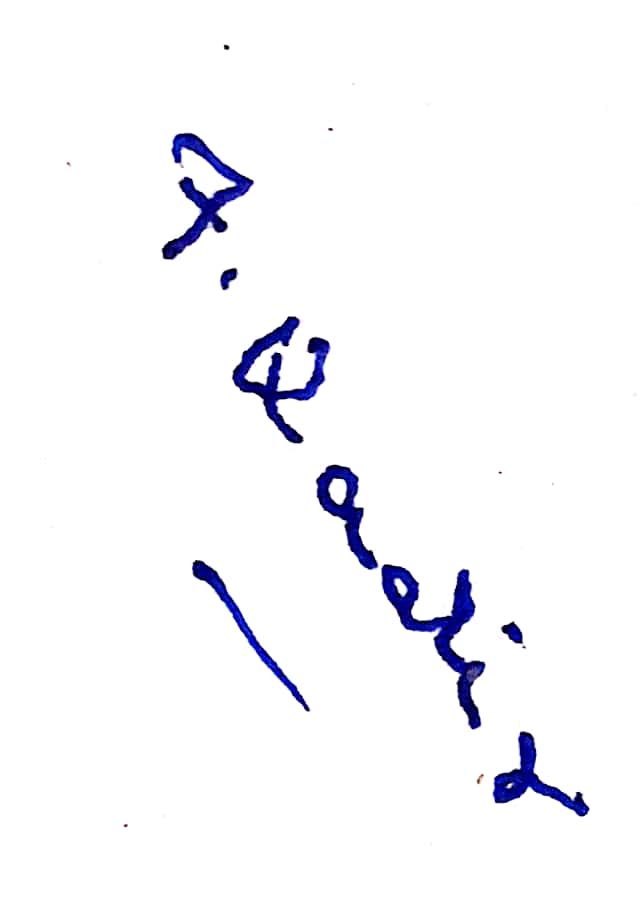 A. Qadir